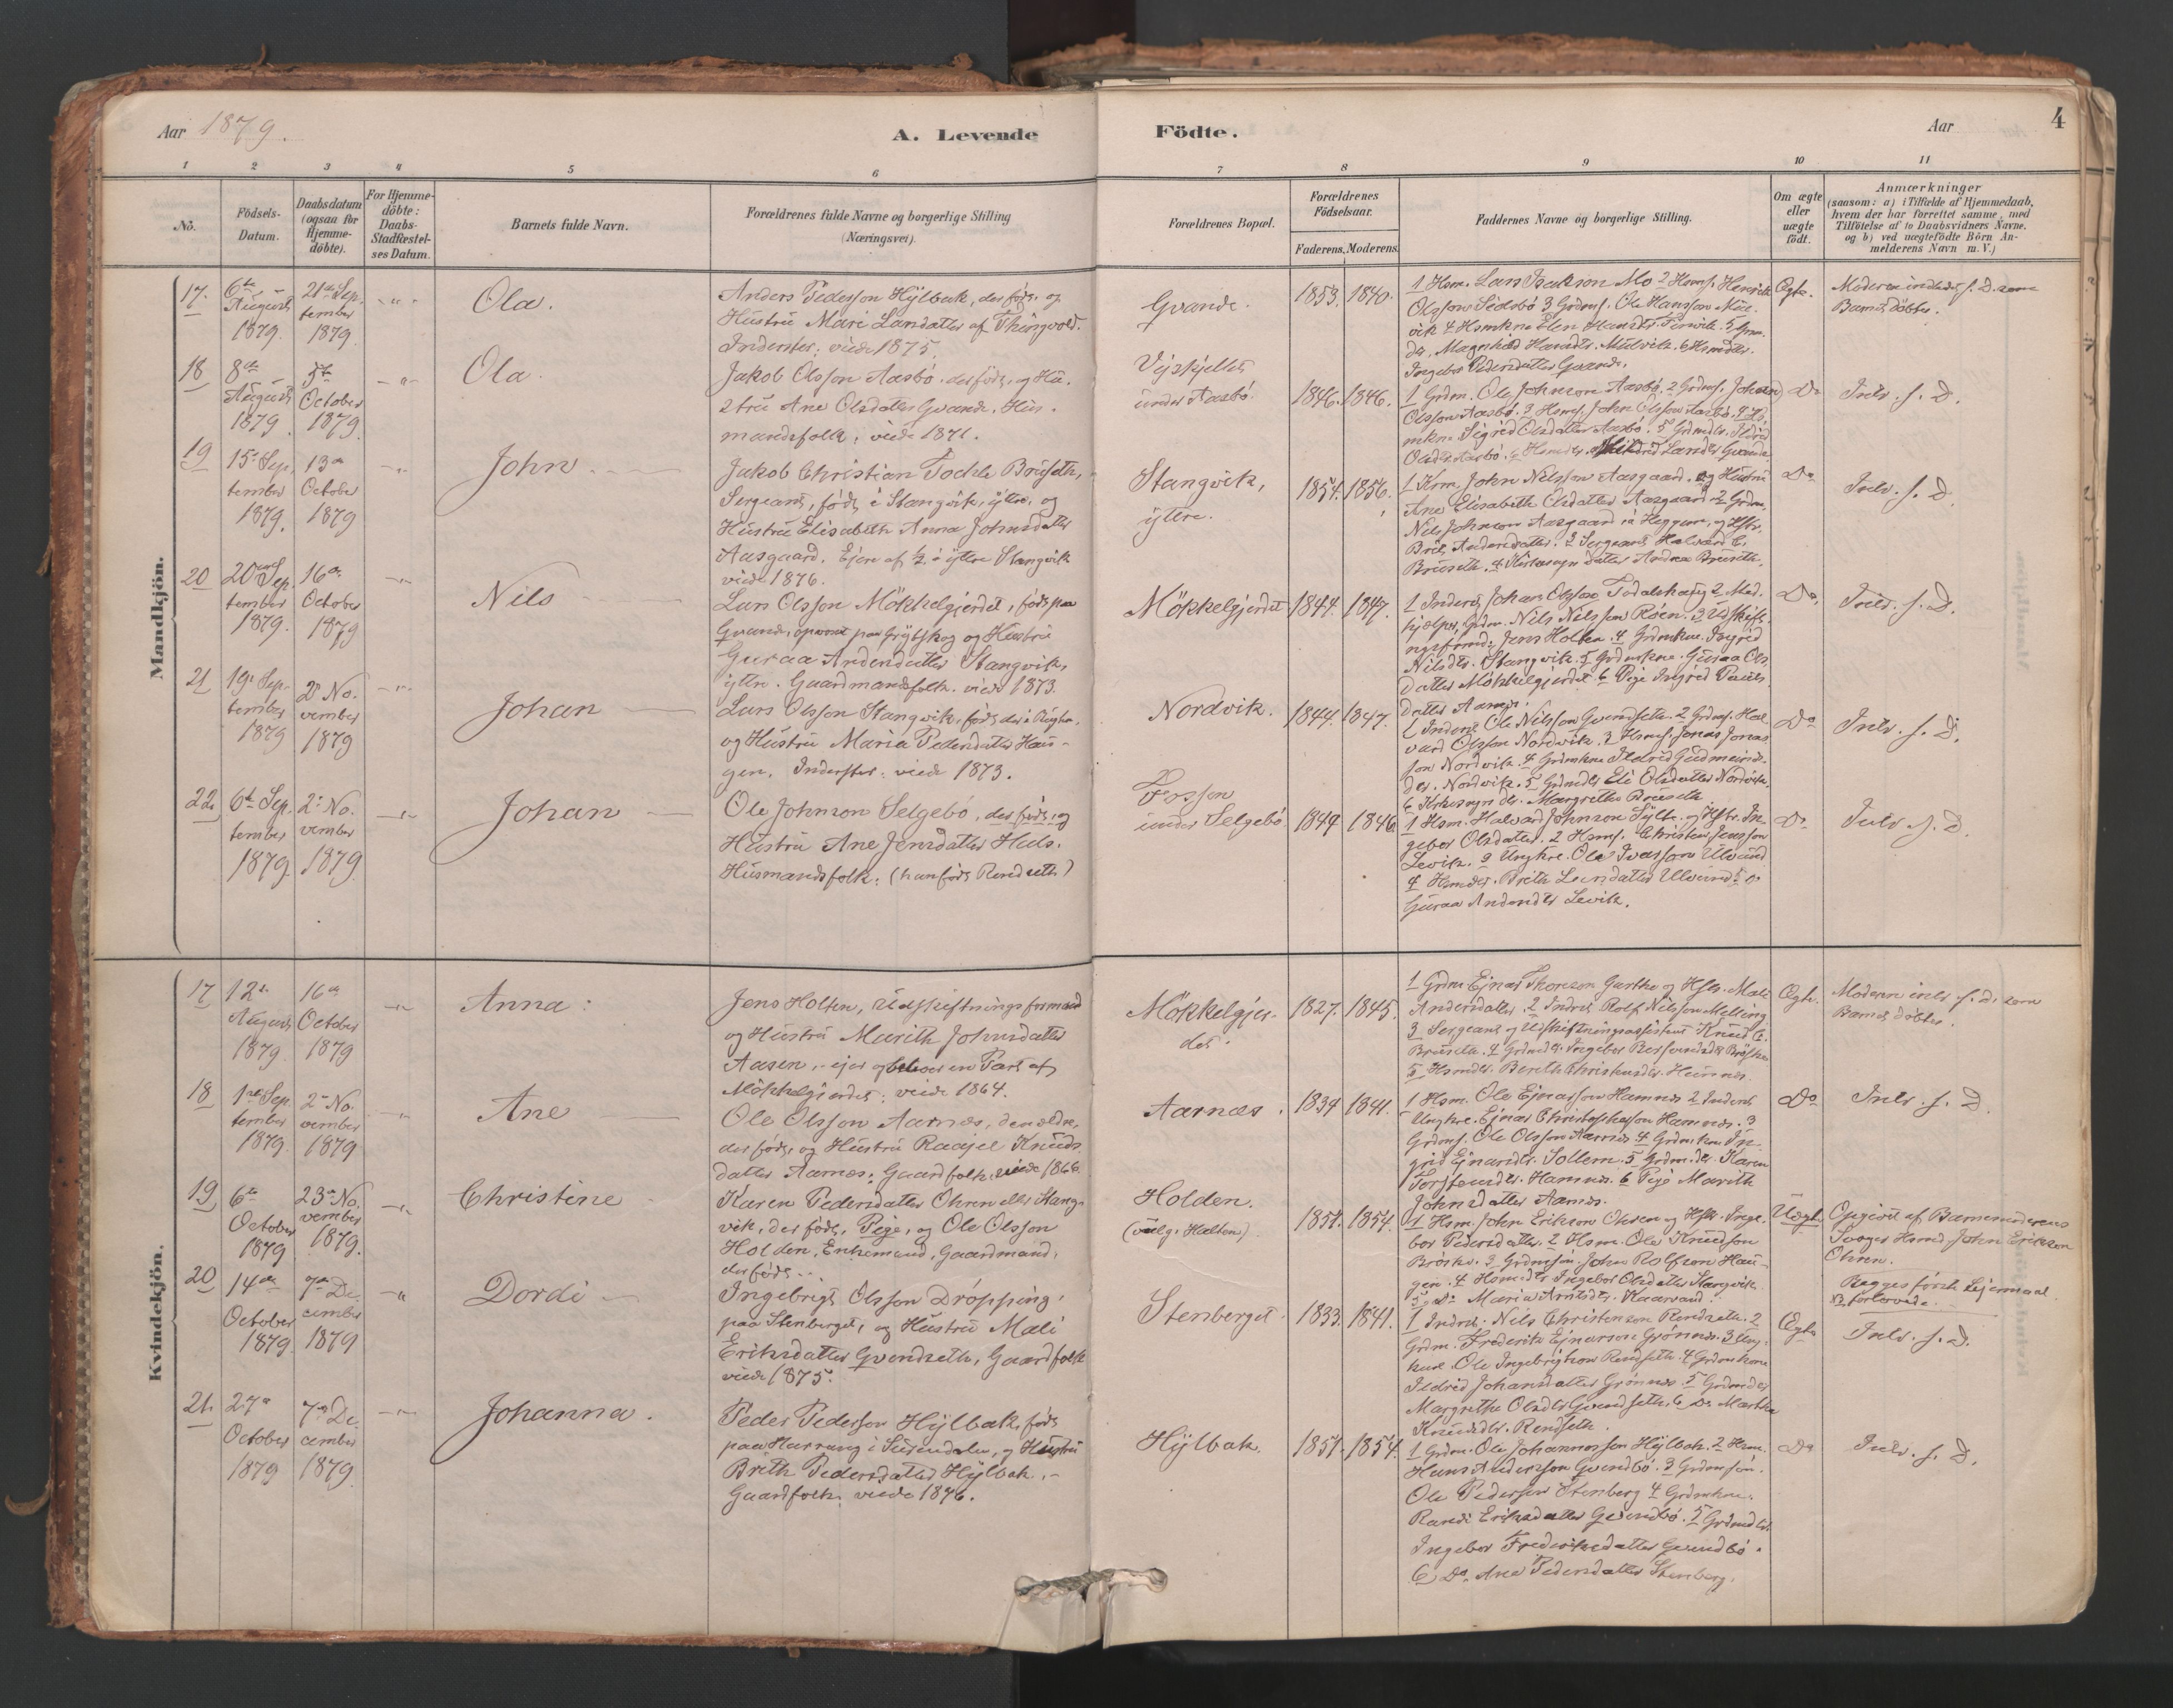 Aar 1879.
A. Levende
Födte.
Aar
4
1 2 3 4 5 6 7 8 9 10 11
No.
Födsels-
Datum.
Daabsdatum
(ogsaa for
Hjemme-
döbte).
For Hjemme-
döbte:
Daabs-
Stadfæstel-
ses Datum.
Barnets fulde Navn.
Forældrenes fulde Navne og borgerlige Stilling
(Næringsvei)
Forældrenes Bopæl.
Forældrenes
Födselsaar.
Faderens. Moderens.
Faddernes Navne og borgerlige Stilling.
Om ægte
eller
uægte
födt.
Anmærkninger
(saasom: a) i Tilfælde af Hjemmedaab,
hvem der har forrettet samme, med
Tilföielse af to Daabsvidners Navne.
og b) ved uægtefödte Börn An-
melderens Navn m. V.)
Mandkjön.
17.
6te
August
1879.
21de Sep-
tember
1879.
Ola.
Anders Pederson Hÿlbak, der föds, og
Hustru Mari Larsdatter af Thingvold.
Inderster; viede 1875.
Gvande.
1853. 1840.
1 Hsm. Lars Isakson Mo 2 Hsmds. Henrik
Olsson 3 Grdms. Ole Hansson
vik 4 Hsmkne Elen
Ingebor Pedersdatter Gvande.
Ægte.
Moderen indledet f. D. som
Barnet döbtes.
18
8de
August
1879.
5te
October
1879.
Ola.
Jakob Olsson Aasbö, der föds, og Hu-
stru Ane Olsdatter Gvande, Hus-
mandsfolk; viede 1871.
under Aasbö.
1846. 1846.
1 Grdm. Ole Johnson Aasbö 2 Grdms. John
Olsson Aasbö. 3 Hsms. John Olsson Aasbö. 4
mkne Sigrid Olsdatter Aasbö. 5 Grdmdtr. Ildrid
Olsdtr. Aasbö. 6 Hsmdtr. Larsdtr Gvande.
Do
Inlv. f. D.
19
15de Sep
tember
1879.
13de
October
1879
John
Jakob Christian Brüseth,
Sergeant, föds i Stangvik, ÿttre, og
Hustru Elisabeth Anna Johnsdatter
Aasgaard. Ejere af ½ i ÿttre Stangvik
viede 1876.
Stangvik,
ÿttre.
1854. 1856.
1 Hsm. John Nilsson Aasgaard og Hustru
Ane Elisabeth Olsdatter Aasgaard 2 Grdm.
Nils Johnson Aasgaard og Hstr.
Brit Andersdatter. 3 Sergeant Halvard C.
Brüseth. 4 datter Andrea Brüseth.
Do
Inlv. f. D.
20
20de Sep
tember
1879.
16de
October
1879
Nils
Lars Olsson Mökkelgjerdet, föds paa
Gvande, opvoxet paa Grytskog og Hustru
Guraa Andersdatter Stangvik,
ÿttre. Gaardmandsfolk. viede 1873.
Mökkelgjerdet
1844. 1847.
1 Inderst Johan Olsson Todalshaug 2 Med-
hjælper, Grdm. Nils Nilsson Röen. 3 Udskift-
ningsformd. Jens Holten. 4 Grdmkne. Ingrid
Nilsdtr. Stangvik. 5 Grdmkne. Guraa Ols-
datter Mökkelgjerdet 6 Pige Ingrid
datter
Do.
Inlv. f. D.
21
19de Sep-
tember
1879
2den No-
vember
1879
Johan
Lars Olsson Stangvik, föds der i
og Hustru Maria Pedersdatter Hau-
gen. Inderster. viede 1873.
Nordvik.
1844. 1847.
1 Inderst Ole Nilsson Gvendseth 2 Grdms. Hal-
vard Olsson Nordvik. 3 Hsms. Jonas Jonas
son Nordvik. 4 Grdmkne Ildrid Gudmunds-
dtr. Nordvik. 5 Grdmdtr Eli Olsdatter Nordvik.
6 Margrethe Brüseth
Do
Inlv. f. D.
22
6te Sep
tember
1879
2den No.
vember
1879.
Johan
Ole Johnson Selgebö, der föds, og
Hustru Ane Jensdatter Huls.
Husmandsfolk. (han föds Rendseth)
under Selgebö
1849 1846
1 Hsm. Halvard Johnson Sÿlte og Hstr. In-
gebor Olsdatter. 2 Hsms. Christen Jensson
Levik. 3 Ungkre. Ole Ivarsson Ulvund
4 Hsmdtr. Brith Larsdatter Ulvund 5 Do
Guraa Andersdtr Levik.
Do
Inlv. f. D.
Kvindekjön.
17
12te
August
1879.
16de
October
1879
Anna.
Jens Holten, Udskiftningsformand
og Hustru Marith Johnsdatter
Aasen, ejer og beboer en Part af
Mökkelgjerdet; viede 1864.
Mökkelgjer-
det.
1827. 1845.
1 Grdm Ejnar Thoreson og Hstr. Mali
Andersdatter. 2 Inderst Rolf Nilsson Melling
3 Sergeant og Udskiftningsassistent Knud C.
Brüseth. 4 Grdmdtr. Ingebor
5 Hsmdtr. Berith Christensdtr. Hamnes
Ægte.
Moderen inlv. f. D. som
Barnet döbtes.
18
1ste Sep
tember
1879.
2den No.
vember
1879
Ane
Ole Olsson Aarnes, den ældre,
der föds, og Hustru Raagel Knuds
datter Aarnes; Gaardfolk. viede 1866.
Aarnæs.
1834 1841.
1 Hsm. Ole Ejnarsson Hamnes 2 Inderst
Ungkre. Ejnar Christophersson Hamnes. 3
Grdms. Ole Olsson Aarnes 4 Grdmkne In-
grid Ejnarsdtr. Sollem. 5 Grdm.dtr. Karen
Torsteinsdtr. Hamnes. 6 Pige Marith
Johnsdatter Aarnes.
Do
Inlv. f. D.
19
6te
October
1879
23de No.
vember
1879.
Christine
Karen Pedersdatter Ohren eller Stang-
vik, der föds, Pige, og Ole Olsson
Holden, Enkemand, Gaardmand,
der föds.
Holden.
(vulg. Halten)
1851. 1854.
1 Hsm. John Erikson Ohren og Hstr. Inge-
bor Pedersdatter. 2 Hsm. Ole Knudson
Bröske. 3 Grdmsön. John Rolfson Hau-
gen. 4 Hsmdtr Ingebor Olsdatter Stangvik.
5 Do Maria Kaarvand.
Uægte
Opgivet af Barnemoderens
Svoger Hsmd. John Erikson
Ohren.
Begges förste Lejermaal.
forlovede.
20
14de
October
1879.
7de De
cember
1879
Dordi
Ingebrigt Olsson Dröpping,
paa Stenberget, og Hustru Mali
Eriksdatter Gvendseth, Gaardfolk
viede 1875.
Stenberget
1833. 1841.
1 Inderst. Nils Christenson Rendseth. 2
Grdm. Frederik Ejnarson Grönnes. 3 Ung-
kare Ole Ingebrigtson Rendseth. 4 Grdmkone
Ildrid Johansdatter Grönnes 5 Grdmdtr
Margrethe Olsdtr Gvendseth. 6 Do Martha
Knudsdtr. Rendseth.
Ægte
Inlv. f. D.
21.
27de
October
1879
7de De
cember
1879.
Johanna.
Peder Pederson Hÿlbak, föds
paa Harrang i Surendalen, og Hustru
Brith Pedersdatter Hÿlbak.
Gaardfolk. viede 1876.
Hÿlbak.
1851. 1854.
1 Grdm. Ole Johannesson Hÿlbak. 2 Hsm.
Hans Anderson Gvendbö. 3 Grdmsön.
Ole Pederson Stenberg 4 Grdmkne.
Randi Eriksdatter Gvendbö. 5 Grdmdtr.
Ingebor Frederiksdatter Gvendbö.
6 Do. Ane Pedersdatter Stenberg.
Do
Inlv. f. D.